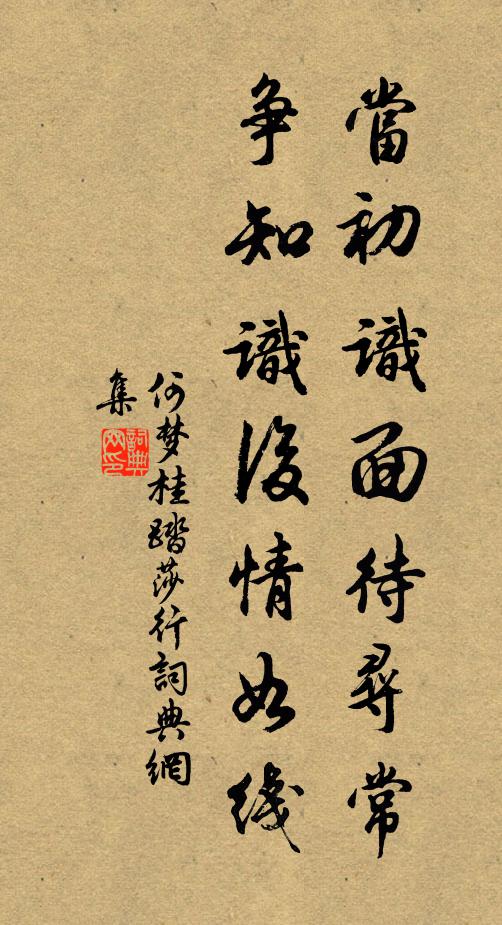 當初識面待尋常
争知識後情如线
何梦桂踏莎行詞典網
集
詞典
网印